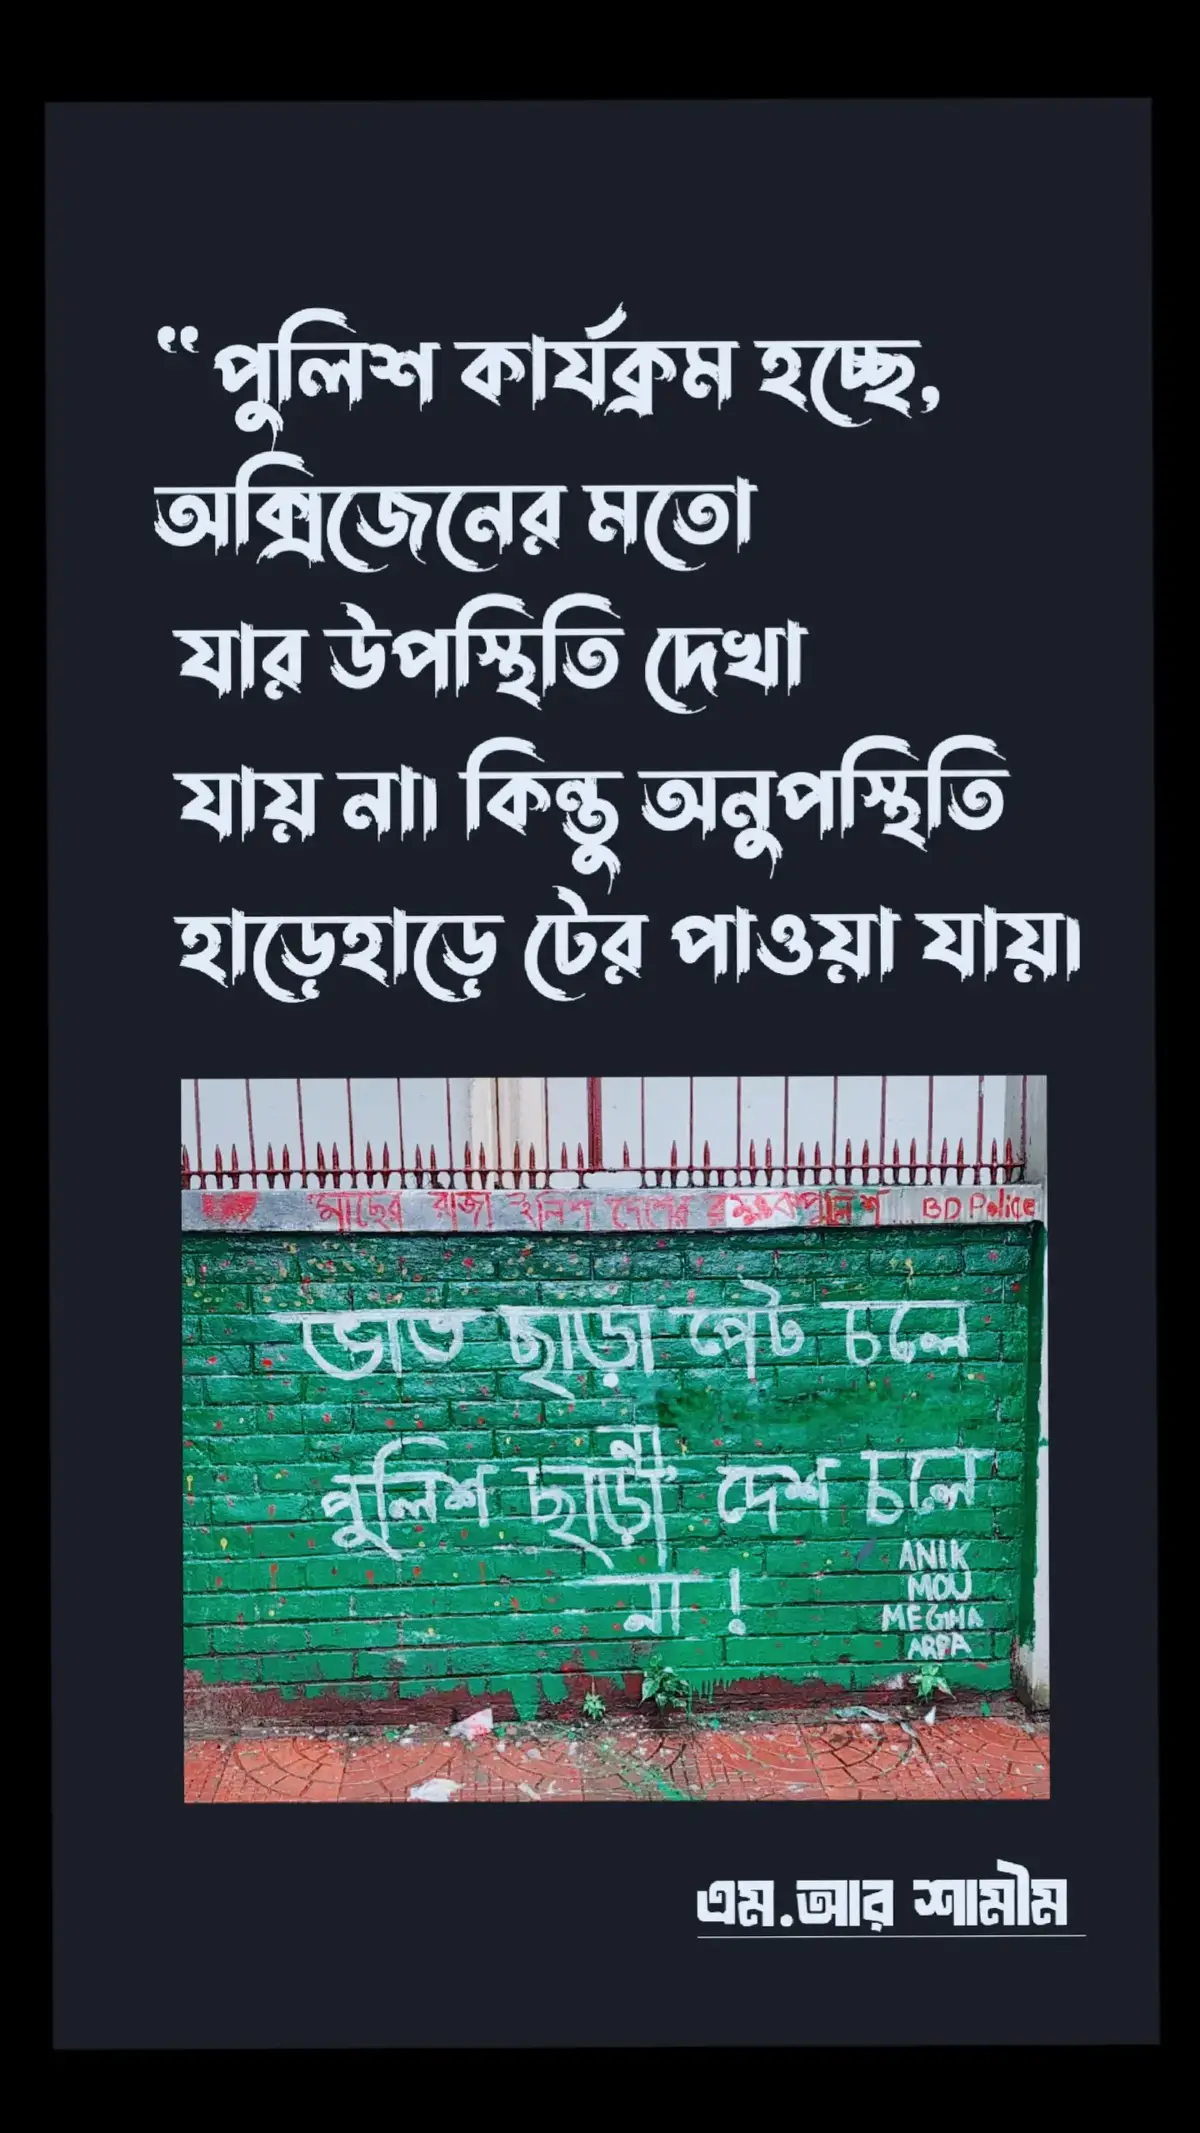 “ পুলিশ কার্যক্রম হচ্ছে,
অক্সিজেনের মতো
যার উপস্থিতি দেখা
যায় না। কিন্তু অনুপস্থিতি
হাড়েহাড়ে টের পাওয়া যায়।
"মাছের রাজা ইলিশ দেশের রক্ষক পুলিশ .... BD Police
ভাত ছাড়া পেট চলে
না
পুলিশ ছাড়া দেশ চলে
না !
ANIK
MOU
MEGHA
ARPA
এম.আর শামীম